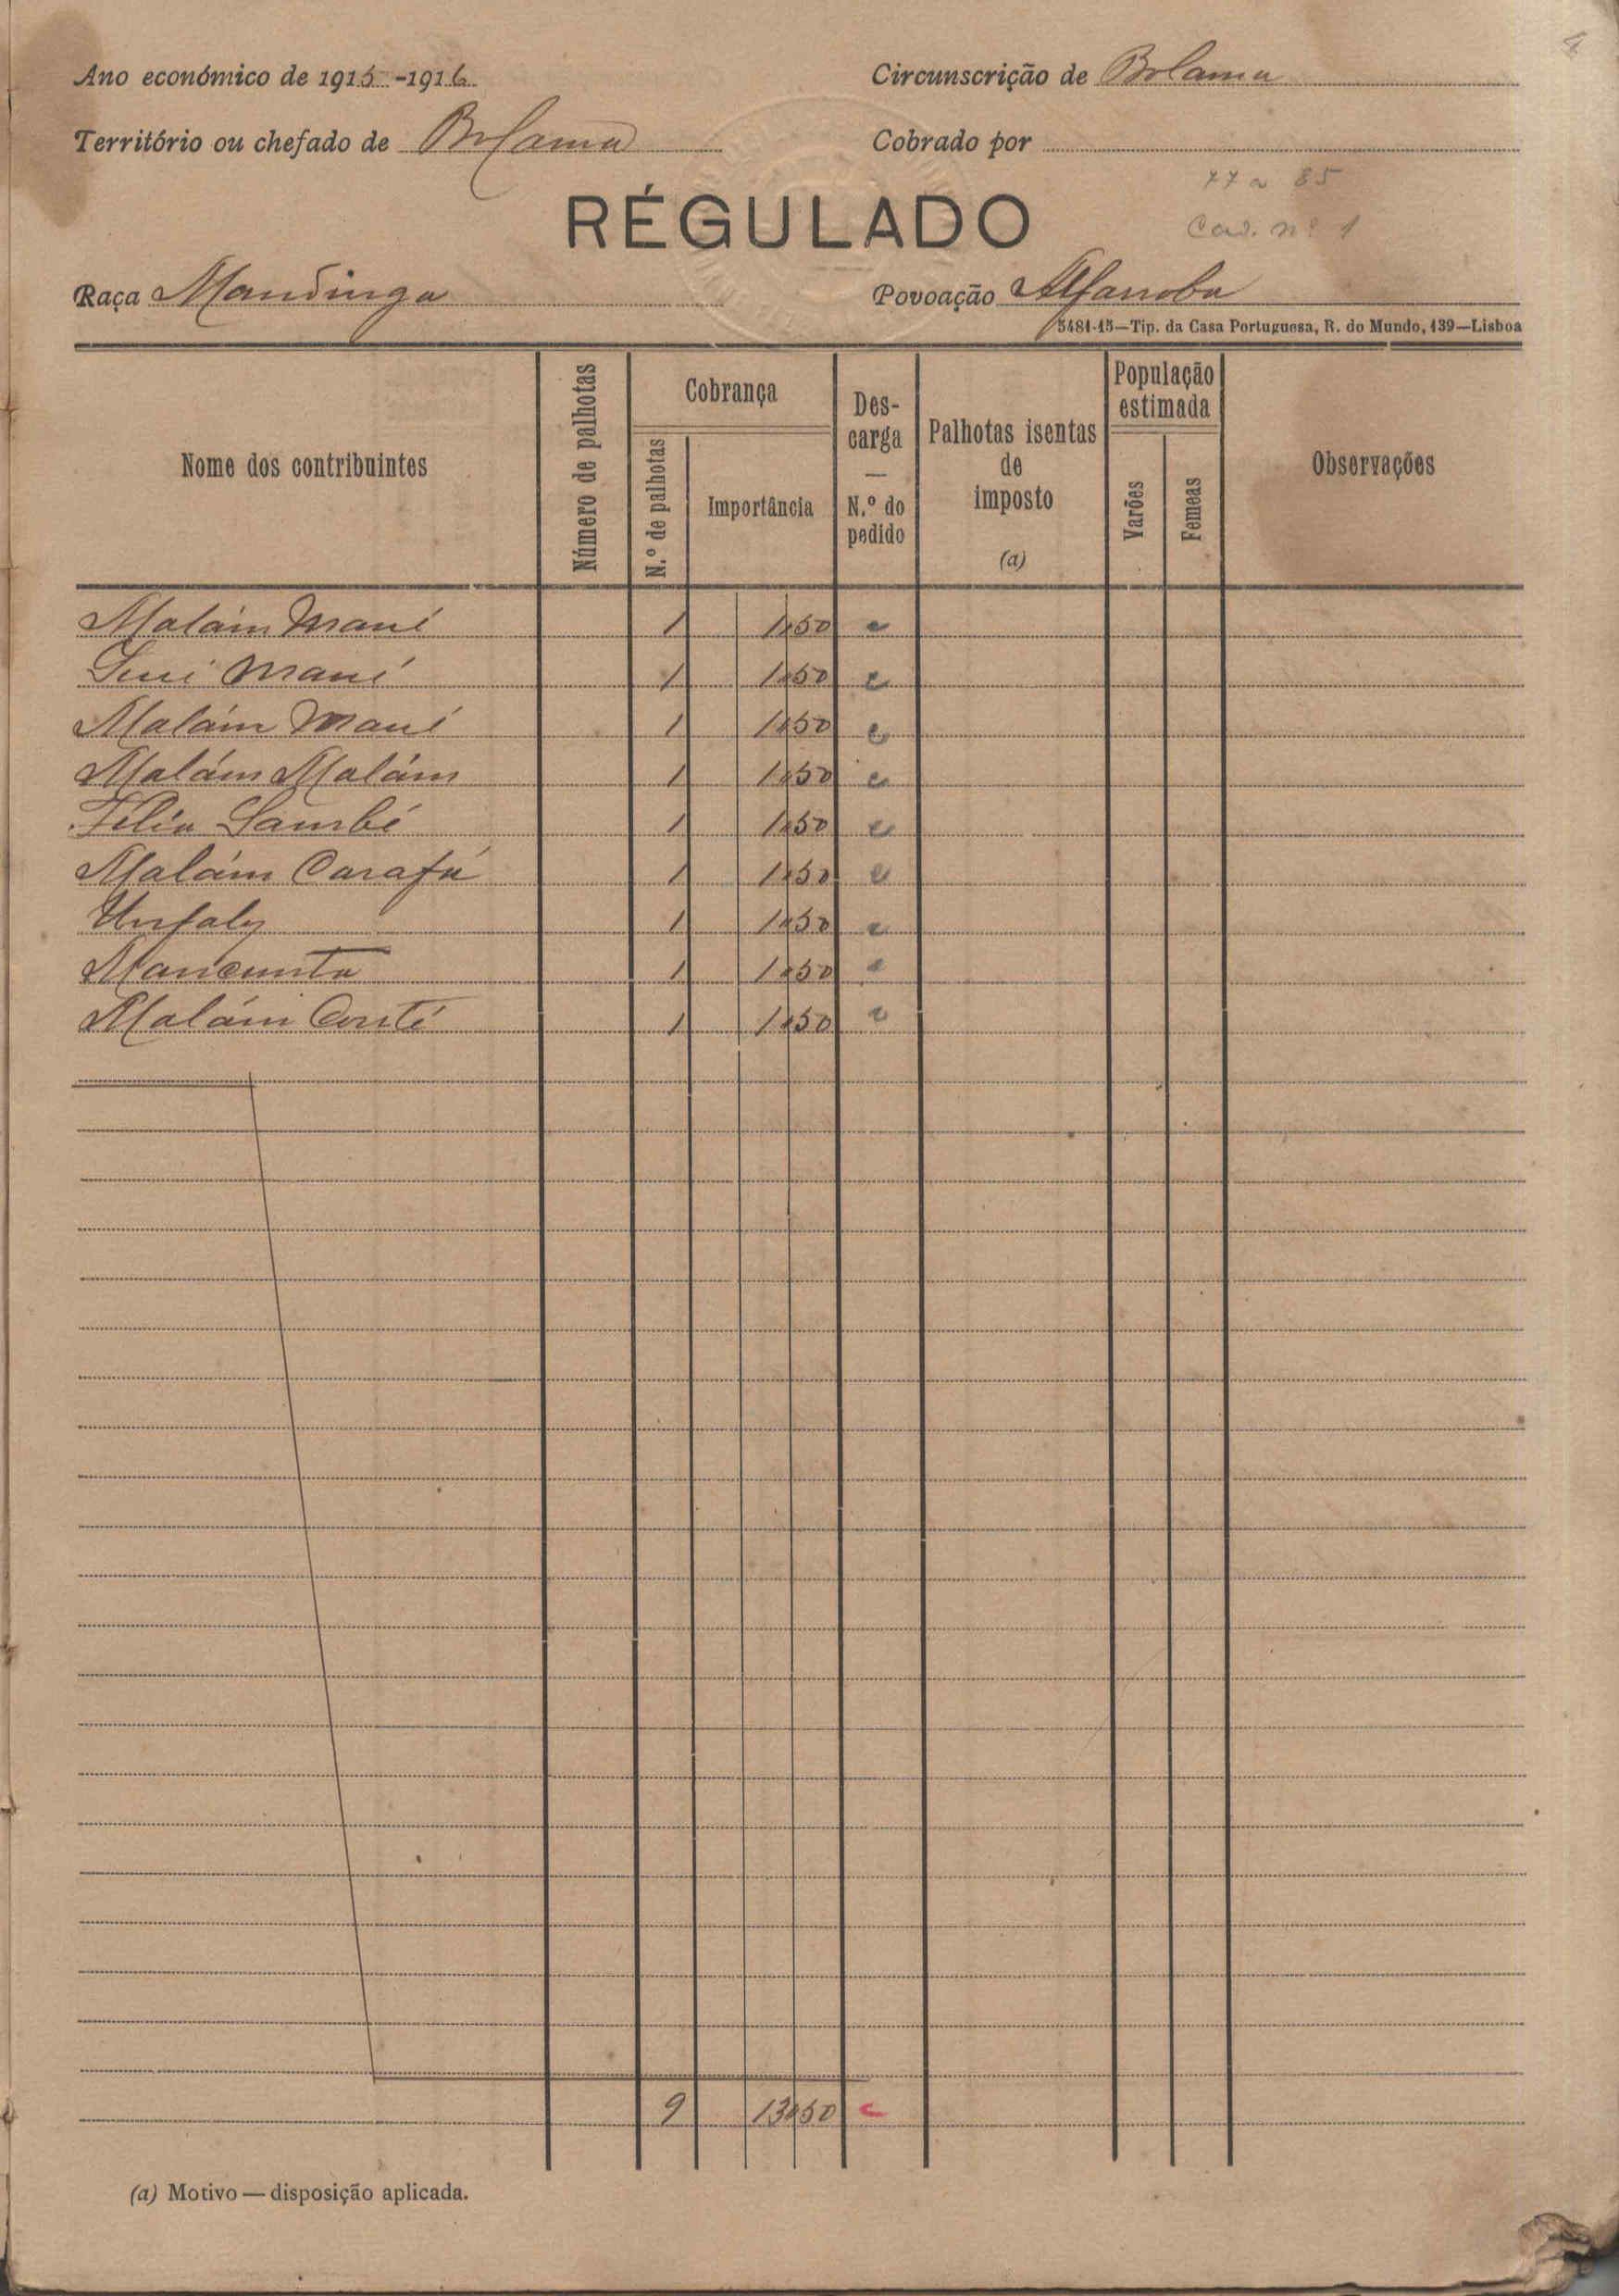 Ano económico de 1915-1916
Circunscrição de Bolama
Território ou chefado de Bolama
Cobrado por
77 a 85
RÉGULADO
Cad. nº 1
Raça Mandinga
Povoação Alfarroba
5481-15—Tip. da Casa Portuguesa, R. do Mundo, 139—Lisboa
Nome dos contribuintes
Número de palhotas
Cobrança
N.º de palhotas
Importância
Descarga
—
N.º do pedido
Palhotas isentas
de
imposto
(a)
População
estimada
Varões
Femeas
Observações
Malám Mané 1 1$50 c
Suni Mané 1 1$50 c
Malám Mané 1 1$50 c
Malám Malám 1 1$50 c
Sambé 1 1$50 c
Malám Carafá 1 1$50 c
Unfaly 1 1$50 c
Mancunta 1 1$50 c
Malám Conté 1 1$50 c
9 13$50 c
(a) Motivo — disposição aplicada.